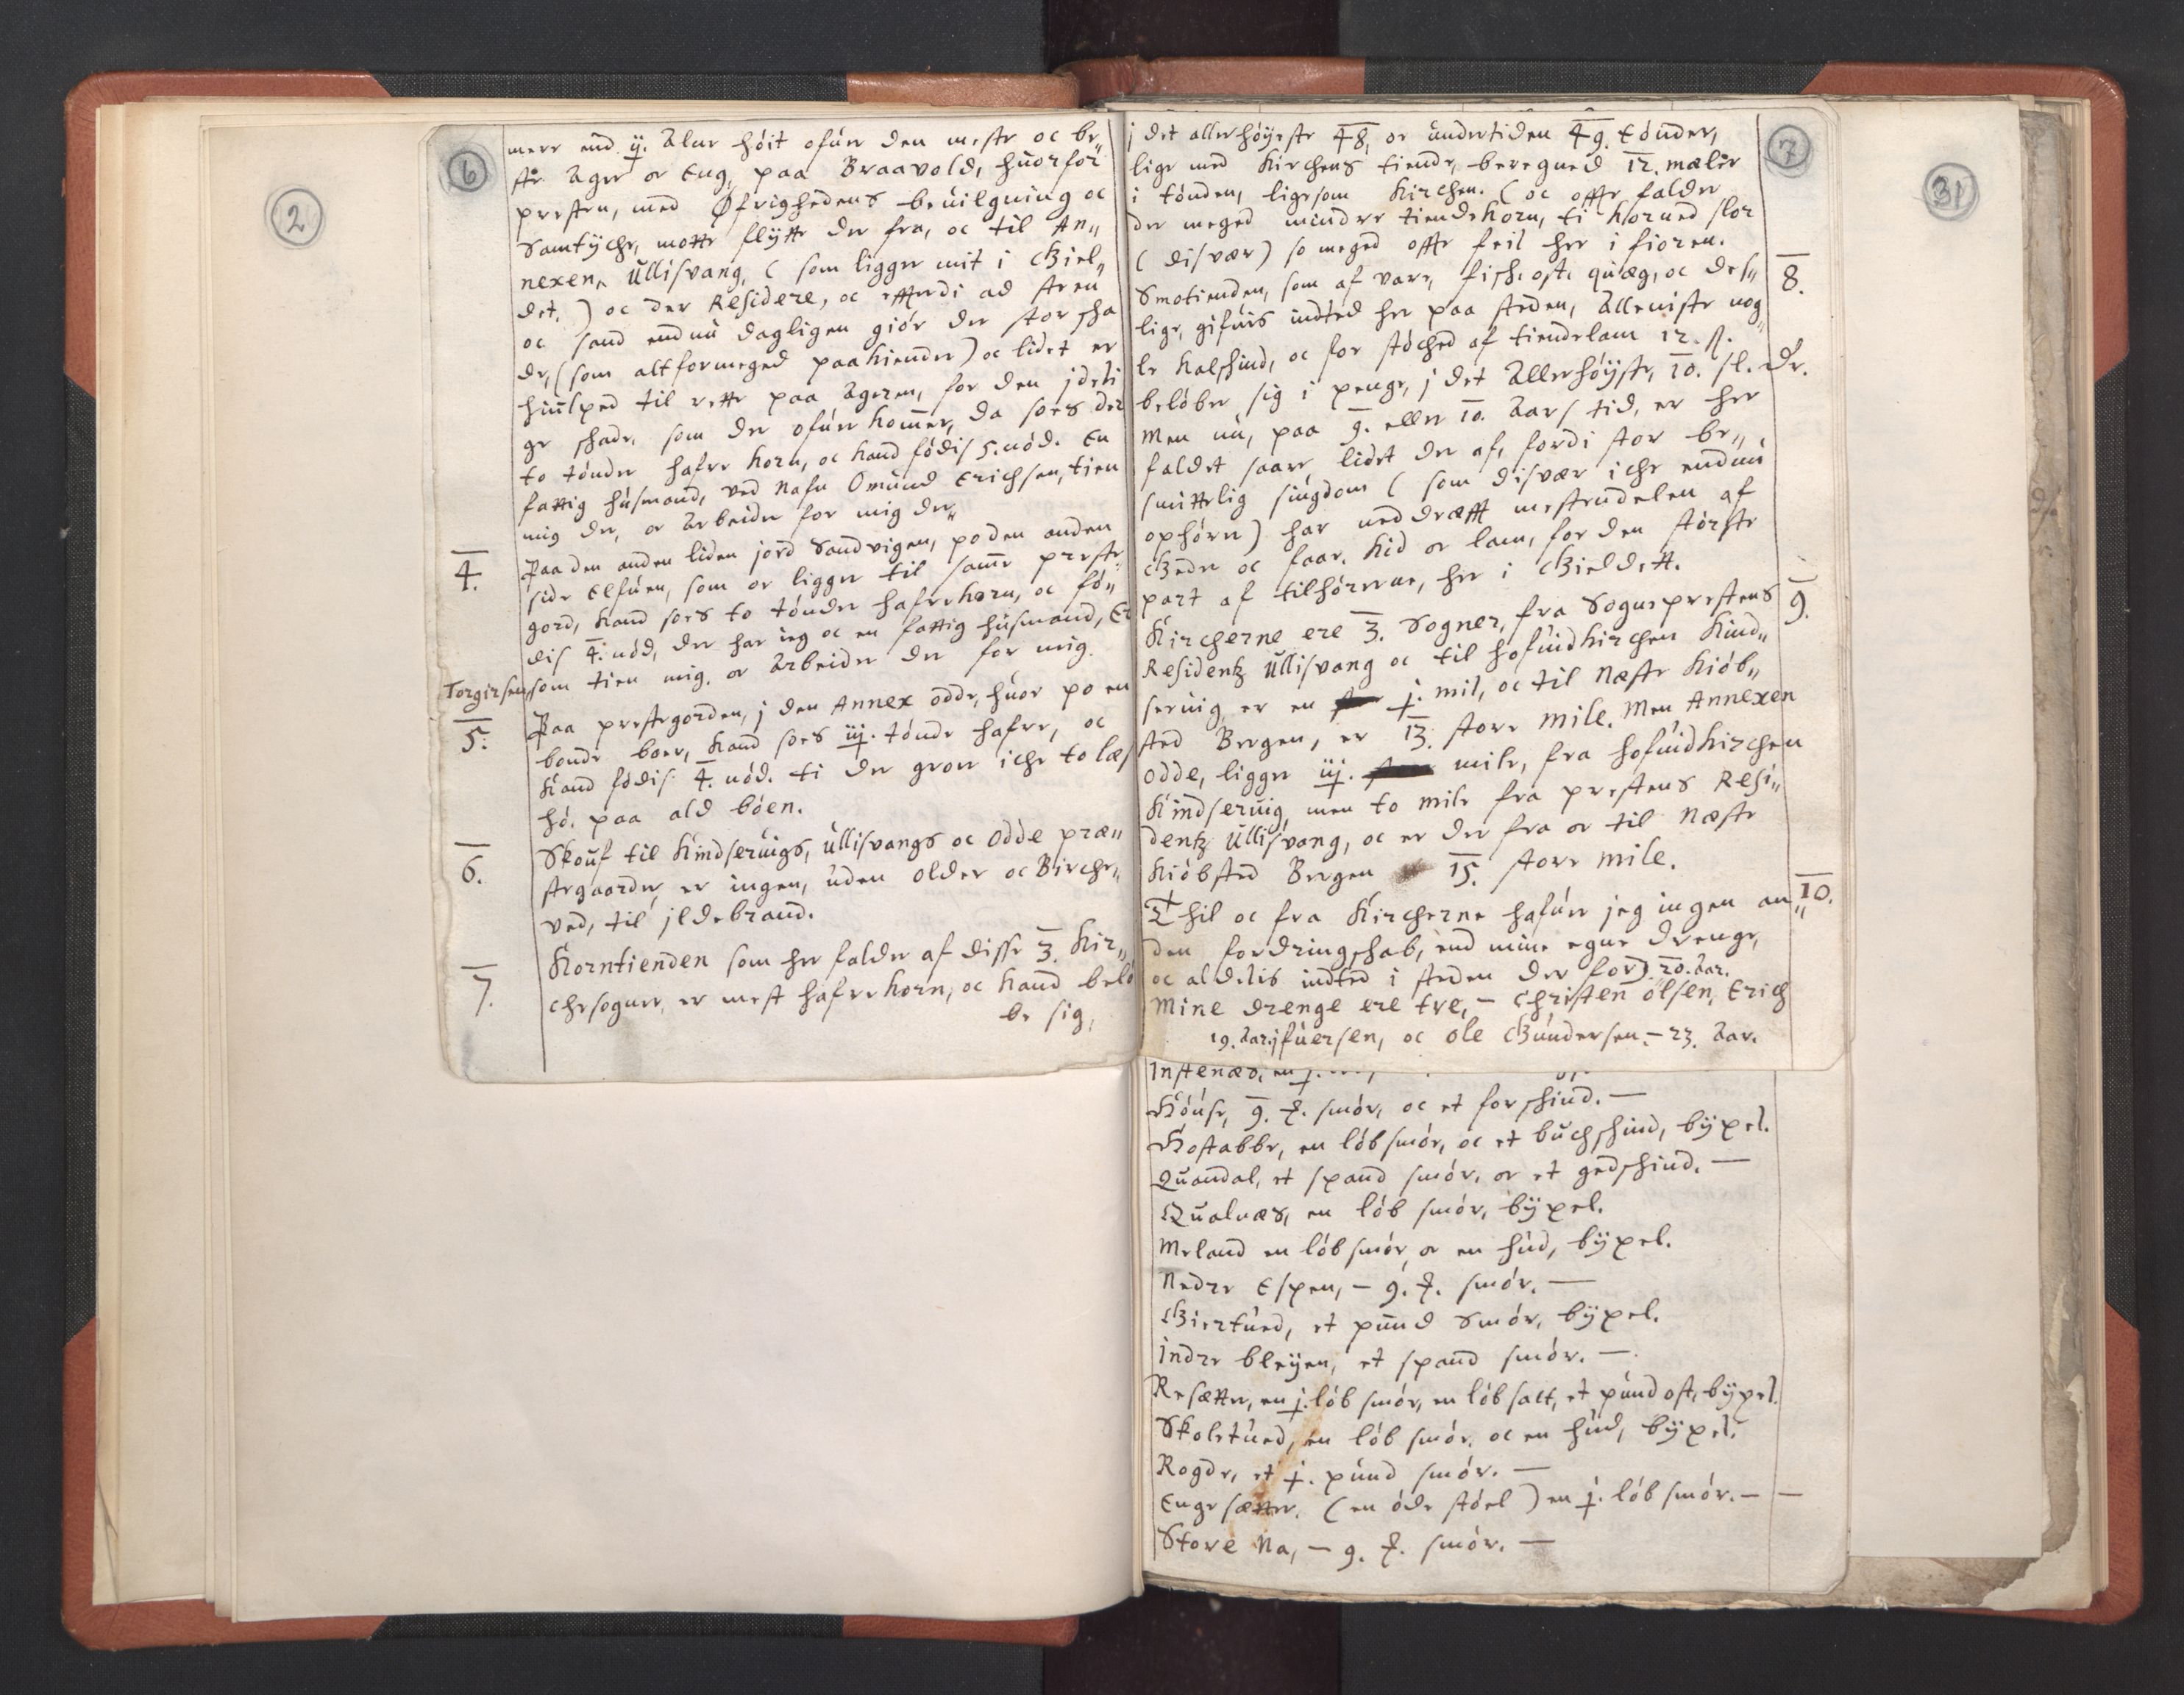 2
6
mere end ij. Alne höit ofuer den meste oc be„
ste Ager oc Eng, paa Braavold, huorfor
presten, med Øfrighedens beuilgning oc
Samtyche, motte flytte der fra, oc til An„
nexen, Ullisvang, (som ligger mit i Giel„
det,) oc der Residere, oc efterdi ad steen
oc sand endnu dagligen giör der stor scha
de, (som altformeged paakiender) oc lidet er
hiulped til rette paa Ageren, for den jdeli
ge schade, som der ofuer kommer, da soes der
to tönder hafre korn, oc kand födis 5. nöd. En
fattig husmand, ved Nafn Omund Erichsen, tien
mig der, oc Arbeider for mig der„
4. Paa den anden liden jord Sandvigen, po den anden
side Elfuen, som oc ligger til samme preste
gord, kand soes to tönder hafrekorn, oc fö„
dis 4. nöd, der har ieg oc en fattig husmand, Er
Torgirsen, som tien mig, oc Arbeider der for mig.
5. Paa prestegorden, j den Annex odde, huor po en
bonde boer, kand soes iij. tönde hafre, oc
kand födis 4. nöd. ti der groer iche to læs
hö. paa ald böen.
6. Skouf til Kindseruigs, Ullisvangs oc Odde præ„
stegaarder, er ingen, uden older oc Birche„
ved, til jldebrand.
7. Korntienden som her falder af disse 3. Kir„
chesogner, er mest hafrekorn, oc kand belö
be sig,
7
31
j det allerhöyeste 48, oc undertiden 49. tönder,
lige med Kirchens tiende, beregned 12. mæler
i tönden, ligesom Kirchen. (oc offte falder
der meged mindre tiendekorn, ti korned slor
(disvær) so meged offte feil her i fioren.
8. Smotienden, som af vare, fisch. ost. quæg, oc des„
lige, gifuis indted her paa steden, Alleniste nog„
le kalfskind, oc for stöched af tiendelam 12. ß.
belöber sig i penge, j det Allerhöyste, 10. sl. dr.
Men nu, paa 9. eller 10. Aars tid, er her
faldet saare lidet der af, fordi stor be„
smittelig siugdom (som disvær iche endnu
ophörer) har neddræfft mestendelen af
Geder oc faar. Kid oc lam, for den störste
part af tilhörerne, her i Gieldett.
9. Kircherne ere 3. Sogner, fra Sogneprestens
Residentz Ullisvang oc til hofuidkirchen Kind„
seruig er en j. mil, oc til Næste kiöb„
sted Bergen, er 13. store mile. Men Annexen
Odde, ligger iij. mile, fra hofuidkirchen
Kindseruig, men to mile fra prestens Resi„
dentz Ullisvang, oc er der fra oc til Næste
kiöbsted Bergen 15. store mile.
10. Thil oc fra Kircherne hafuer jeg ingen an„
den fordringschab, end mine egne drenge,
oc aldelis indted i steden der for). 20. Aar.
Mine drenge ere tre, – Christen Olsen, Erich
19. Aar. jfuersen, oc Ole Gundersen. – 23. Aar.
Instenæs, en j.
Köuse, 9. smör, oc et forschind. —
Kostabbe, en löb smör, oc et buchschind, býxel.
Quandal, et spand smör, oc et gedschind. —
Qualnæs, en löb smör, býxel.
Meland en löb smör, oc en hud, býxel.
Nedre Espen, – 9. smör. —
Giertued, et pund Smör, býxel.
Indre bleyen, et spand smör. —
Resætter, en j. löb smör, en löb salt, et pund ost, býxel.
Skoletued, en löb smör, oc en hud, býxel.
Rogde, et j. pund smör. —
Enge sætter, (en öde stöel) en j. löb smör. — —
Store Na, – 9. smör. —